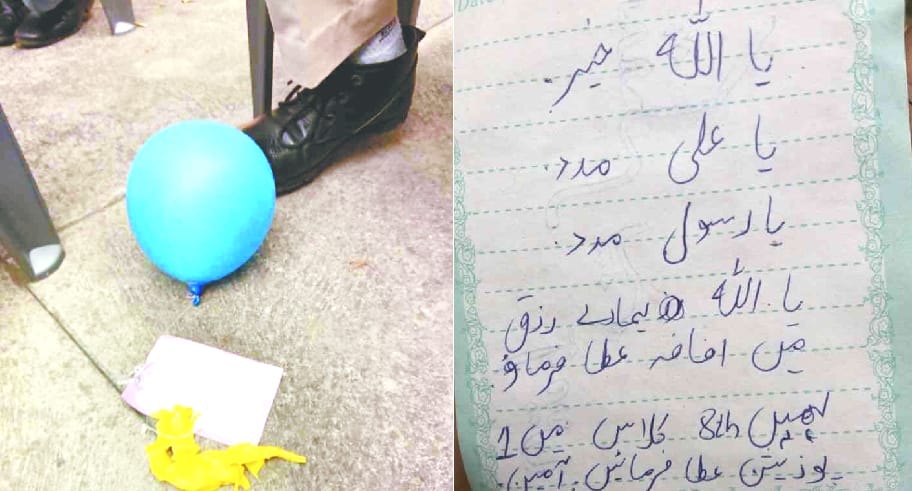 Date
یا اللّٰہ خیر.
یا علی مدد.
یا رسول مدد.
یا اللّٰہ ہمارے رزق
میں اضافہ عطا فرماؤ.
ہمیں 8th کلاس میں 1
پوزیشن عطا فرمائیں. آمین.